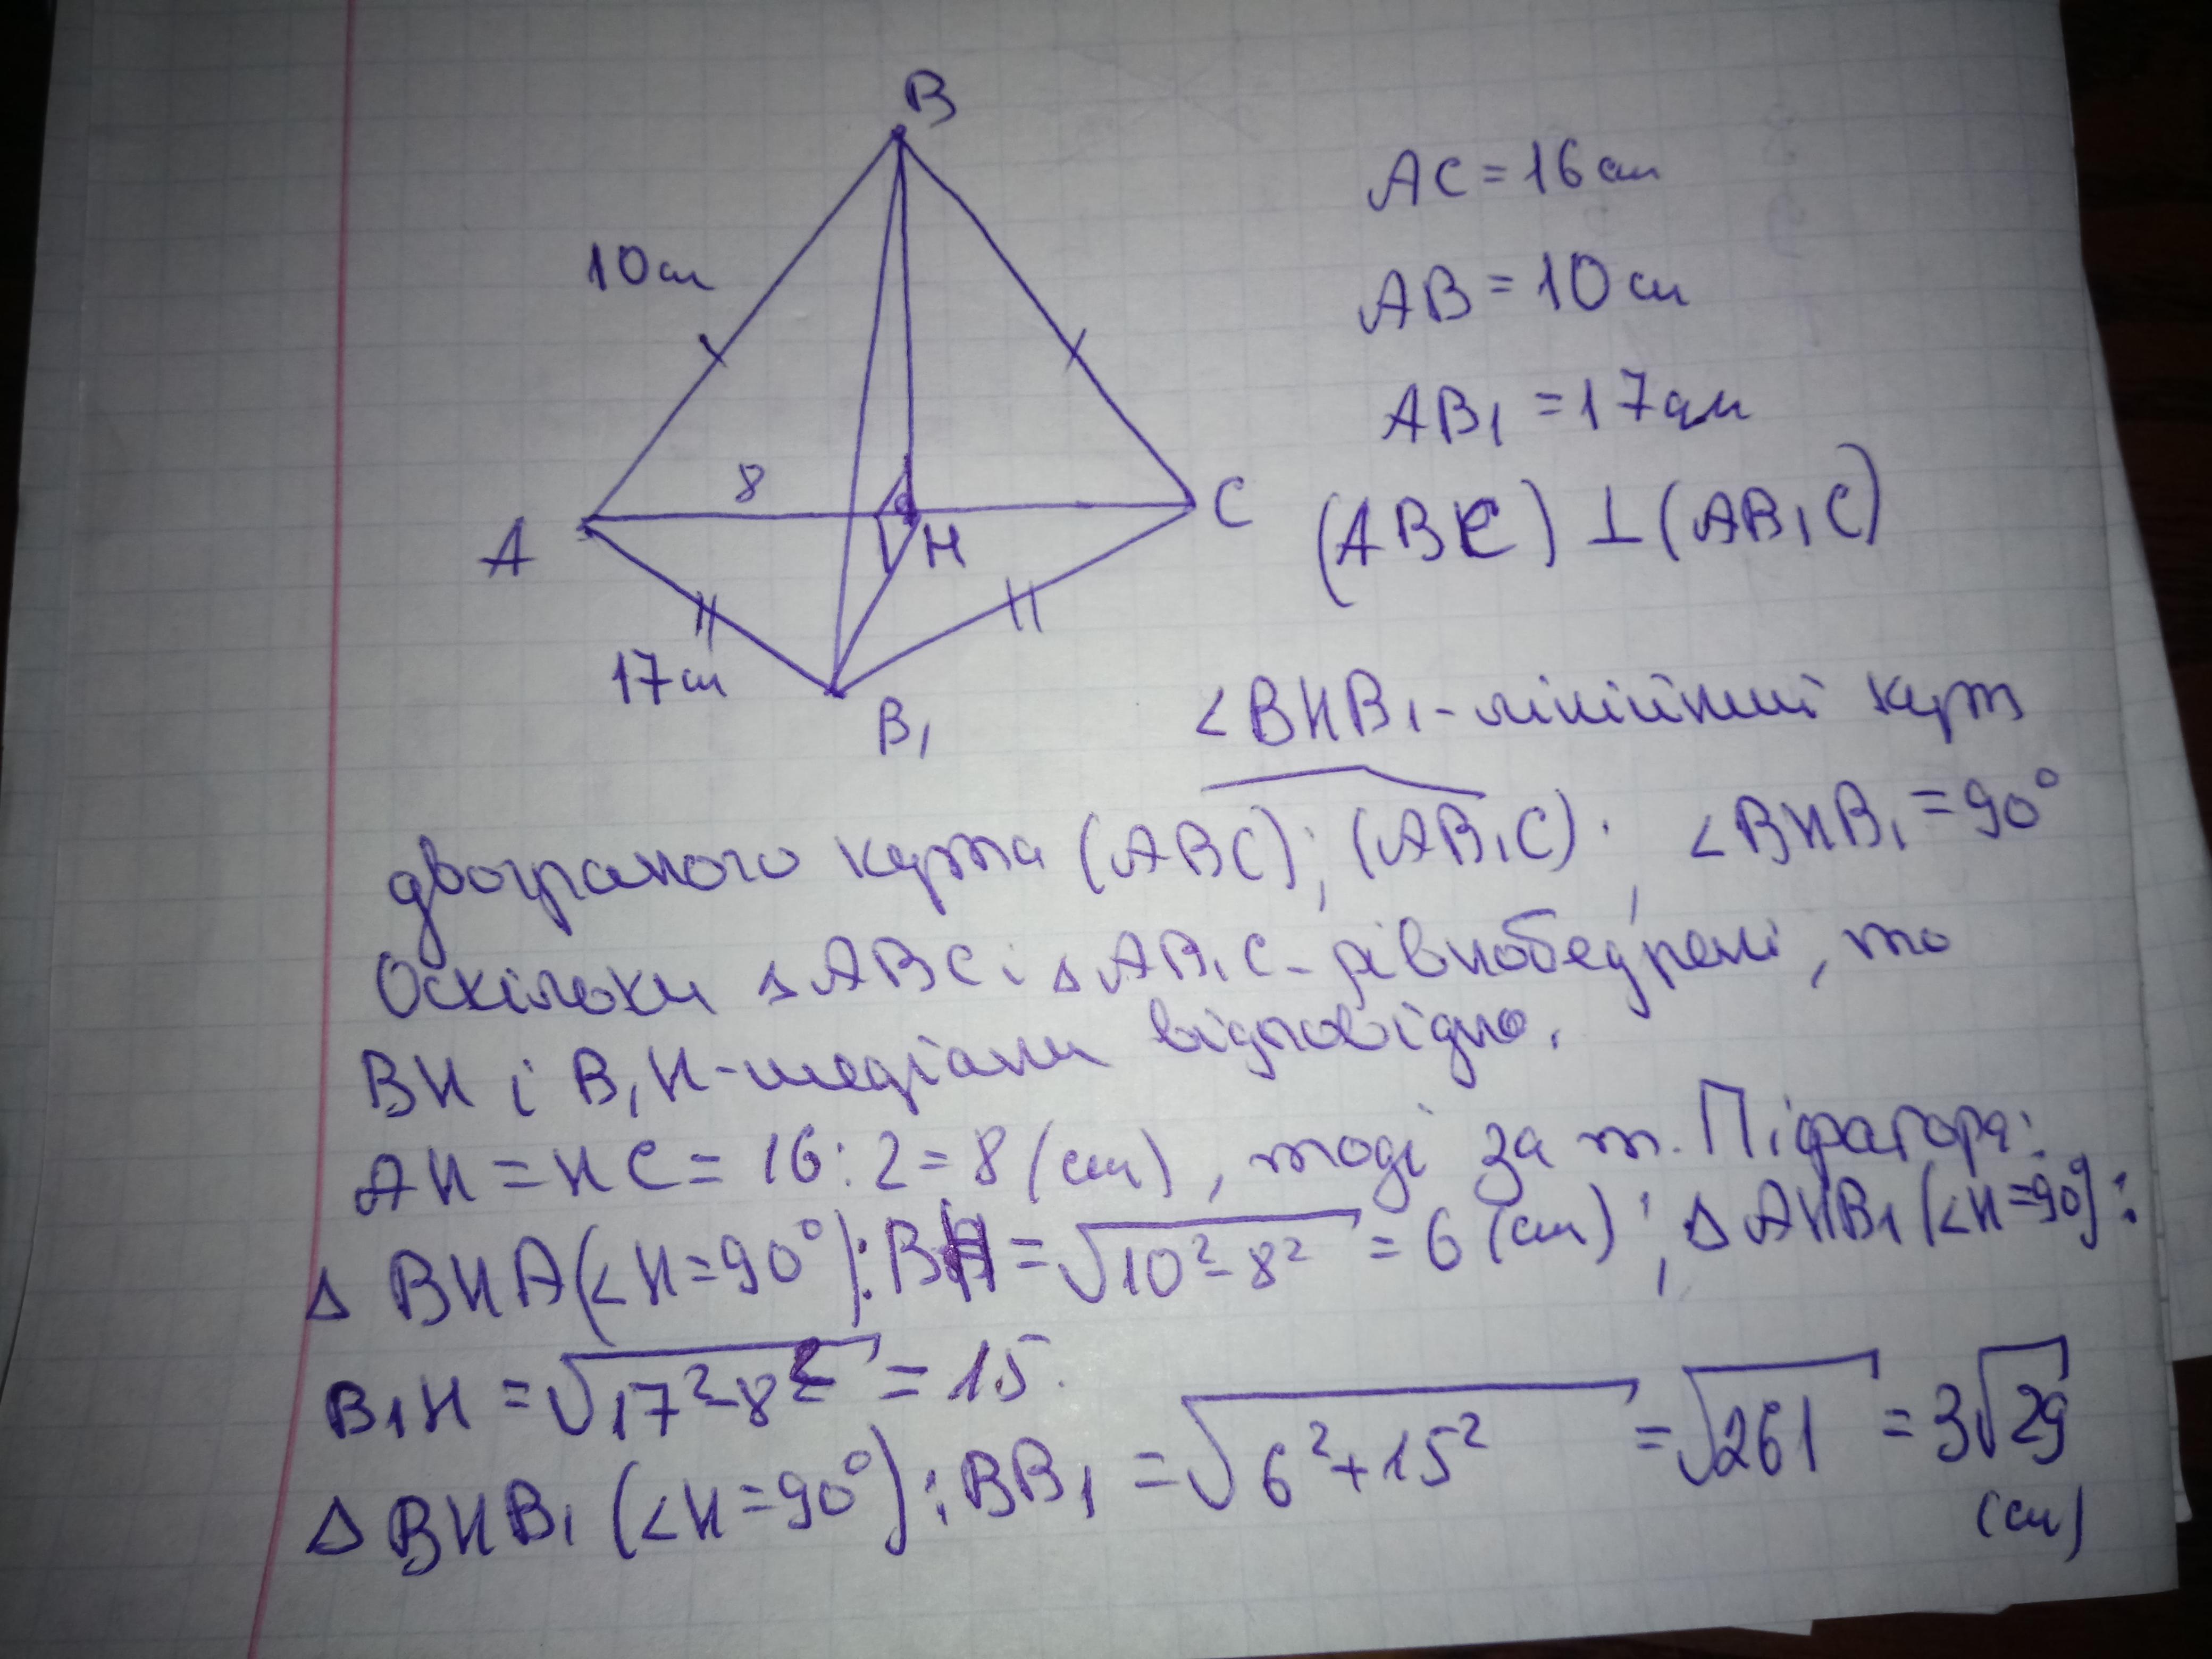 B
10см
8
A
H
C
17см
B₁
AC = 16 см
AB = 10 см
AB₁ = 17 см
(ABC) ⊥ (AB₁C)
∠BHB₁ - лінійний кут
двогранного кута (ABC); (AB₁C); ∠BHB₁ = 90°
Оскільки △ABC і △AB₁C - рівнобедрені, то
BH і B₁H - медіани відповідно.
AH = HC = 16 : 2 = 8 (см), тоді за т. Піфагора:
△ BHA (∠H = 90°): BH = √10² - 8² = 6 (см); △ AHB₁ (∠H = 90°):
B₁H = √17² - 8² = 15.
△ BHB₁ (∠H = 90°): BB₁ = √6² + 15² = √261 = 3√29
(см)